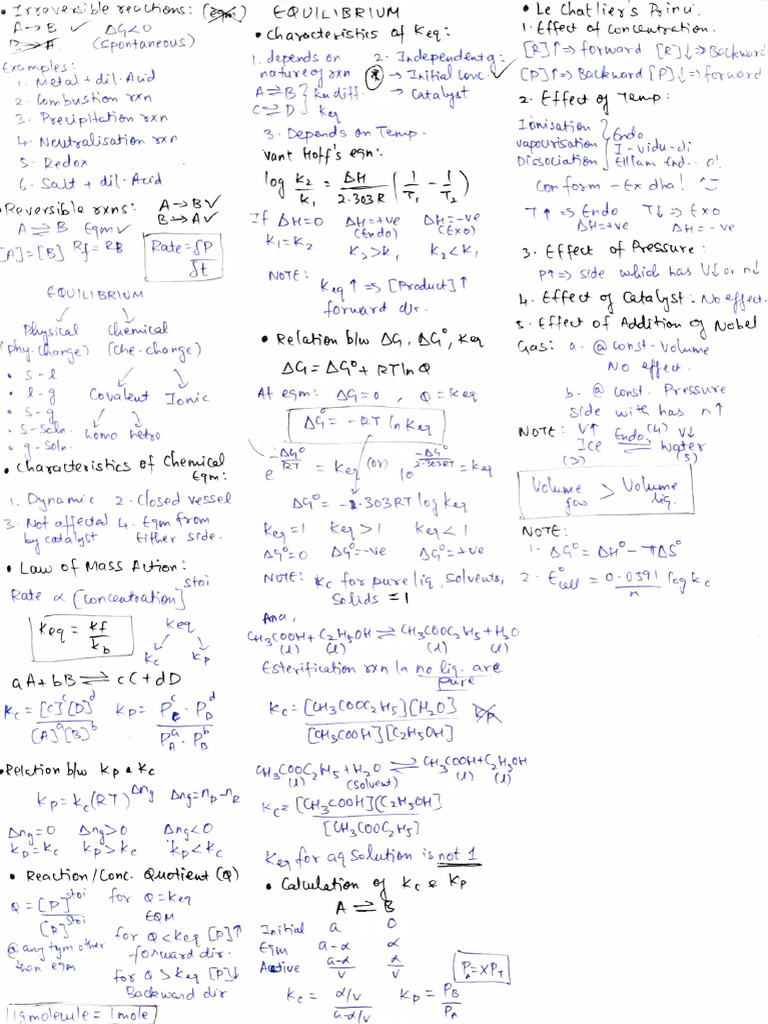 • Irreversible reactions: (eqm)
A → B ✓ ΔG<0
B → A. (spontaneous)
Examples:
1. Metal + dil. Acid
2. Combustion rxn
3. Precipitation rxn
4. Neutralisation rxn
5. Redox
6. Salt + dil. Acid
• Reversible rxns: A → B ✓
B → A ✓
A ⇌ B Eqm ✓
[A]=[B] Rf = RB
Rate = δP/δt
EQUILIBRIUM
Physical Chemical
(phy. change) (che. change)
• s-l
• l-g
• s-g
• s-soln.
• g-soln.
Covalent Ionic
homo hetro
• Characteristics of Chemical
Eqm:
1. Dynamic 2. Closed vessel
3. Not affected 4. Eqm from
by catalyst Either side.
• Law of Mass Action:
Rate ∝ [concentration]^stoi
Keq = kf/kb
Keq
Kc Kp
aA + bB ⇌ cC + dD
Kc = [C]^c [D]^d / [A]^a [B]^b Kp = P_C^c . P_D^d / P_A^a . P_B^b
• Relation b/w Kp & Kc
Kp = Kc (RT)^Δng Δng = np - nR
Δng=0 Δng>0 Δng<0
Kp=Kc Kp>Kc Kp<Kc
• Reaction/Conc. Quotient (Q)
Q = [P]^stoi / [R]^stoi
@ any tym other
than eqm
for Q = Keq
EQM
for Q < Keq [P]↑
forward dir.
for Q > Keq [P]↓
Backward dir
1g molecule = 1 mole
EQUILIBRIUM
• Characteristics of Keq:
1. depends on 2. Independent of:
nature of rxn → Initial conc. ✓
A ⇌ B → Catalyst
C ⇌ D } Keq
3. Depends on Temp.
Vant Hoff's eqn:
log K2/K1 = ΔH/2.303R (1/T1 - 1/T2)
If ΔH=0 ΔH=+ve ΔH=-ve
(Endo) (Exo)
K1=K2 K2>K1 K2<K1
NOTE:
Keq ↑ ⇒ [Product] ↑
forward dir.
• Relation b/w ΔG, ΔG°, Keq
ΔG = ΔG° + RT ln Q
At eqm: ΔG=0, Q=Keq
ΔG° = -RT ln Keq
e^(-ΔG°/RT) = Keq (or) 10^(-ΔG°/2.303RT) = Keq
ΔG° = -2.303RT log Keq
Keq=1 Keq>1 Keq<1
ΔG°=0 ΔG°=-ve ΔG°=+ve
NOTE: Kc for pure liq, solvents,
Solids = 1
CH3COOH + C2H5OH ⇌ CH3COOC2H5 + H2O
(l) (l) (l) (l)
Esterification rxn la no liq. are
pure
Kc = [CH3COOC2H5][H2O] / [CH3COOH][C2H5OH] Kp
CH3COOC2H5 + H2O ⇌ CH3COOH + C2H5OH
(l) (solvent) (l) (l)
Kc = [CH3COOH][C2H5OH] / [CH3COOC2H5]
Keq for aq solution is not 1
• Calculation of Kc & Kp
A ⇌ B
Initial a 0
Eqm a-α α
Active a-α/V α/V
Kc = α/V / a-α/V Kp = PB/PA
PA = XPT
• Le Chatlier's Princi.
1. Effect of Concentration.
[R]↑ ⇒ forward [R]↓ ⇒ Backward
[P]↑ ⇒ Backward [P]↓ ⇒ forward
2. Effect of Temp:
Ionisation
vapourisation
Dissociation
Endo
I-vidu-di
Ellam Endo!
Conform - Ex dha!
T↑ ⇒ Endo T↓ ⇒ Exo
ΔH=+ve ΔH=-ve
3. Effect of Pressure:
P↑ ⇒ side which has V↓ or n↓
4. Effect of Catalyst: No effect.
5. Effect of Addition of Nobel
Gas: a. @ const. Volume
No effect.
b. @ const. Pressure
side with has n↑
NOTE: V↑ Endo V↓
Ice ⇌ Water
Volume gas > Volume liq.
NOTE:
1. ΔG° = ΔH° - TΔS°
2. E°cell = 0.0591/n log Kc